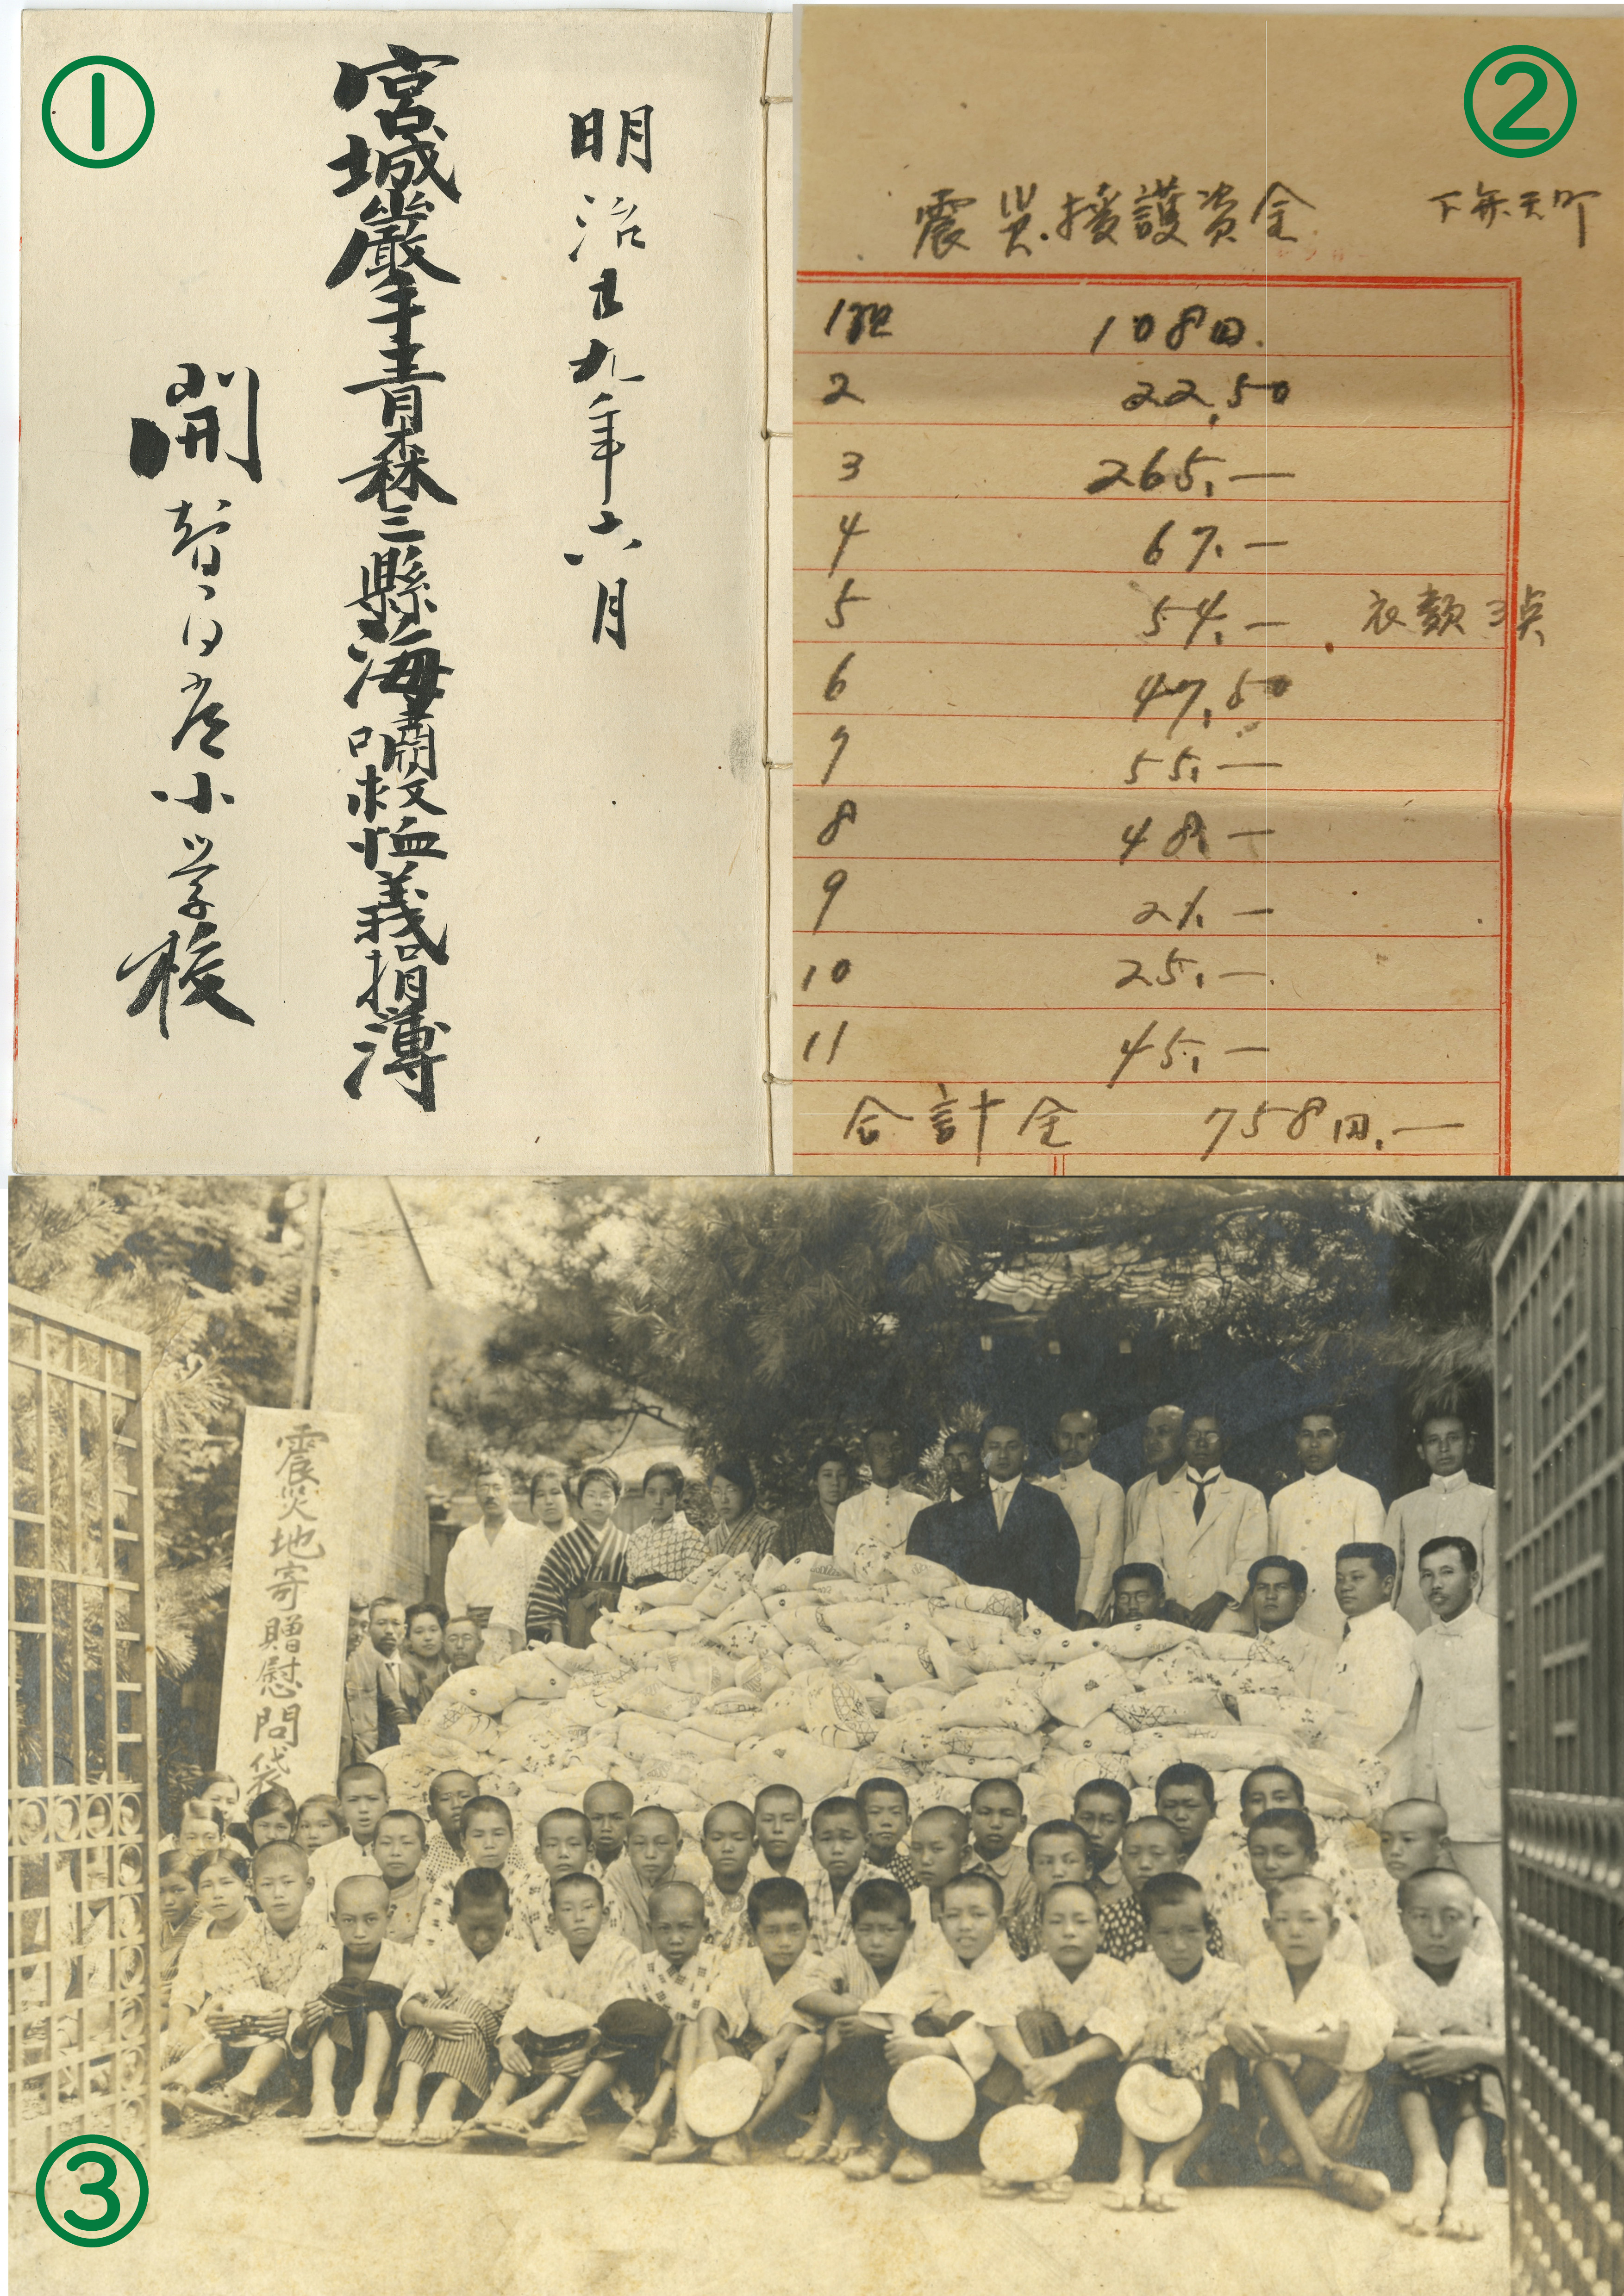 ①
明治廿九年六月
宮城巖手青森三縣海嘯救恤義捐簿
開智小学校
②
震災援護資金 下弁天町
1組 108円.
2 22,50
3 265,—
4 67,—
5 54,— 衣類3点
6 47,50
7 55,—
8 48,—
9 21,—
10 25,—
11 45,—
合計金 758円,—
③
震災地寄贈慰問袋